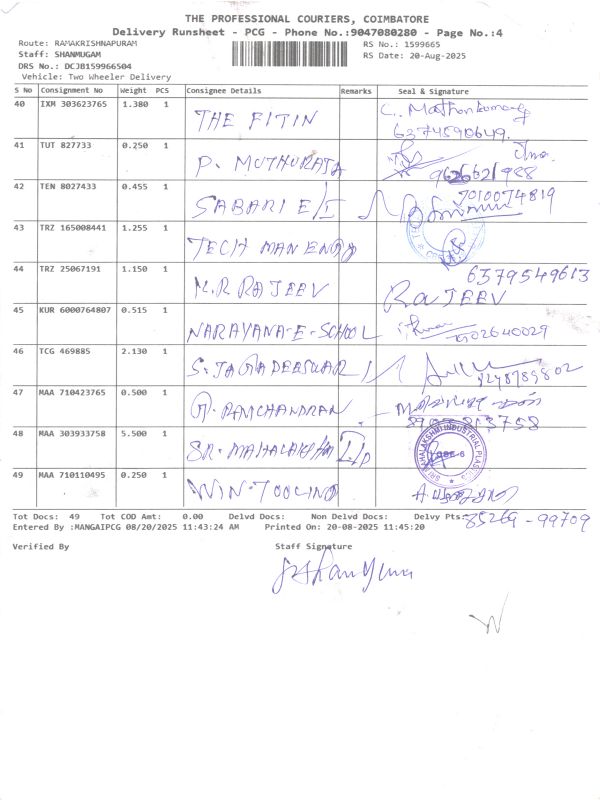 THE PROFESSIONAL COURIERS, COIMBATORE
Delivery Runsheet - PCG - Phone No.:9047080280 - Page No.:4
Route: RAMAKRISHNAPURAM
RS No.: 1599665
Staff: SHANMUGAM
RS Date: 20-Aug-2025
DRS No.: DCJB159966504
Vehicle: Two Wheeler Delivery
S No Consignment No Weight PCS Consignee Details Remarks Seal & Signature
40 IXM 303623765 1.380 1 THE FITIN
6374590649.
41 TUT 827733 0.250 1 P. MUTHURAJA
42 TEN 8027433 0.455 1 SABARI E/I 7010074819
43 TRZ 165008441 1.255 1 TECH MAN ENGG
44 TRZ 25067191 1.150 1 M.R RAJEEV 6379549613
RAJEEV
45 KUR 6000764807 0.515 1 NARAYANA-E-SCHOOL
46 TCG 469885 2.130 1 S. JAGADEESWARI
47 MAA 710423765 0.500 1 RAMCHANDRAN
48 MAA 303933758 5.500 1 SRI-MAHALAKSHMI I/P SRI MAHALAKSHMI INDUSTRIAL PLASTICS
49 MAA 710110495 0.250 1 WIN-TOOLING
Tot Docs: 49 Tot COD Amt: 0.00 Delvd Docs: Non Delvd Docs: Delvy Pts: 85269-99709
Entered By :MANGAIPCG 08/20/2025 11:43:24 AM Printed On: 20-08-2025 11:45:20
Verified By Staff Signature